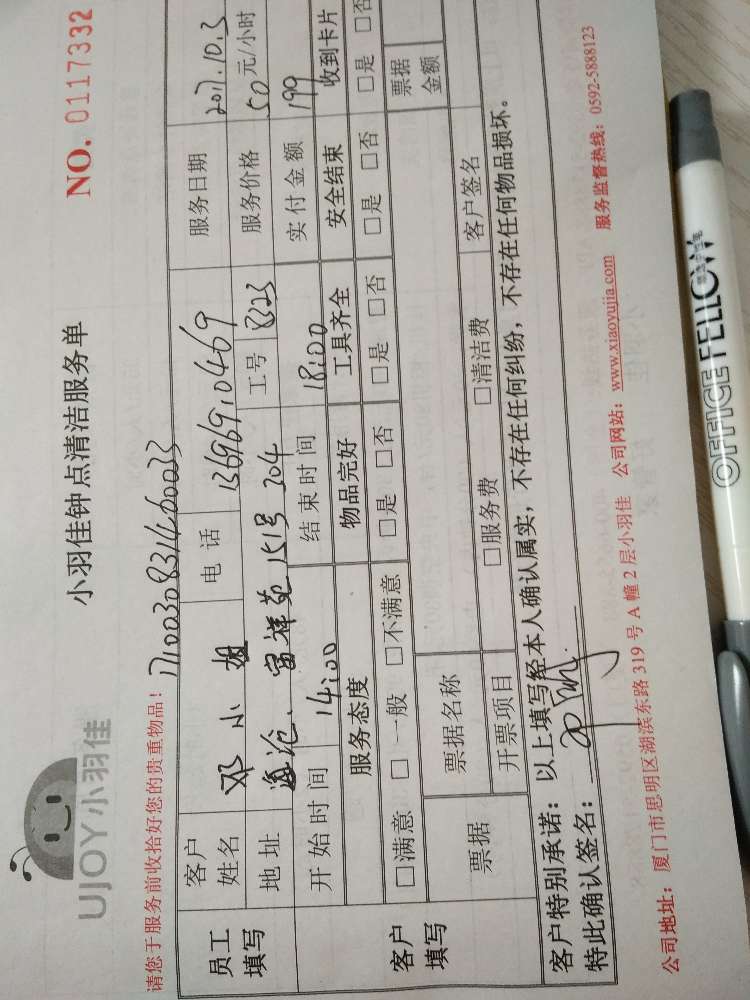 UJOY小羽佳
小羽佳钟点清洁服务单
NO. 0117332
请您于服务前收拾好您的贵重物品!
员工填写 客户姓名 邓小姐 电话 13696910469 服务日期 2017.10.3
地址 海沧、富祥苑151号304 工号 8323 服务价格 50元/小时
开始时间 14:00 结束时间 18:00 实付金额 199
客户填写 服务态度 物品完好 工具齐全 安全结束 收到卡片
□满意 □一般 □不满意 □是 □否 □是 □否 □是 □否 □是 □否
票据 票据名称 票据金额
开票项目 □服务费 □清洁费 客户签名
客户特别承诺:以上填写经本人确认属实,不存在任何纠纷,不存在任何物品损坏。
特此确认签名:
公司地址:厦门市思明区湖滨东路319号A幢2层小羽佳 公司网站:www.xiaoyujia.com 服务监督热线:0592-5888123
OFFICE FELLOW